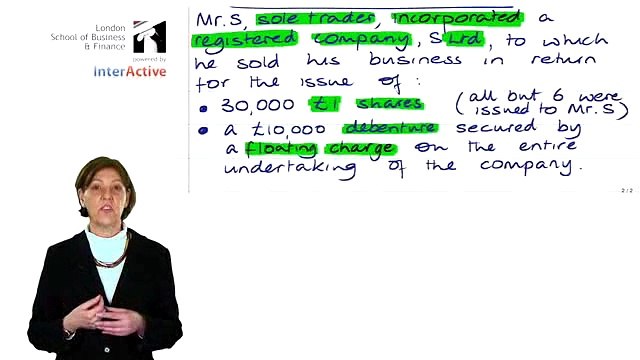 London
School of Business
& Finance
powered by
InterActive
Mr. S, sole trader, incorporated a
registered company, S Ltd, to which
he sold his business in return
for the issue of:
• 30,000 £1 shares (all but 6 were
issued to Mr. S)
• a £10,000 debenture secured by
a floating charge on the entire
undertaking of the company.
2/2